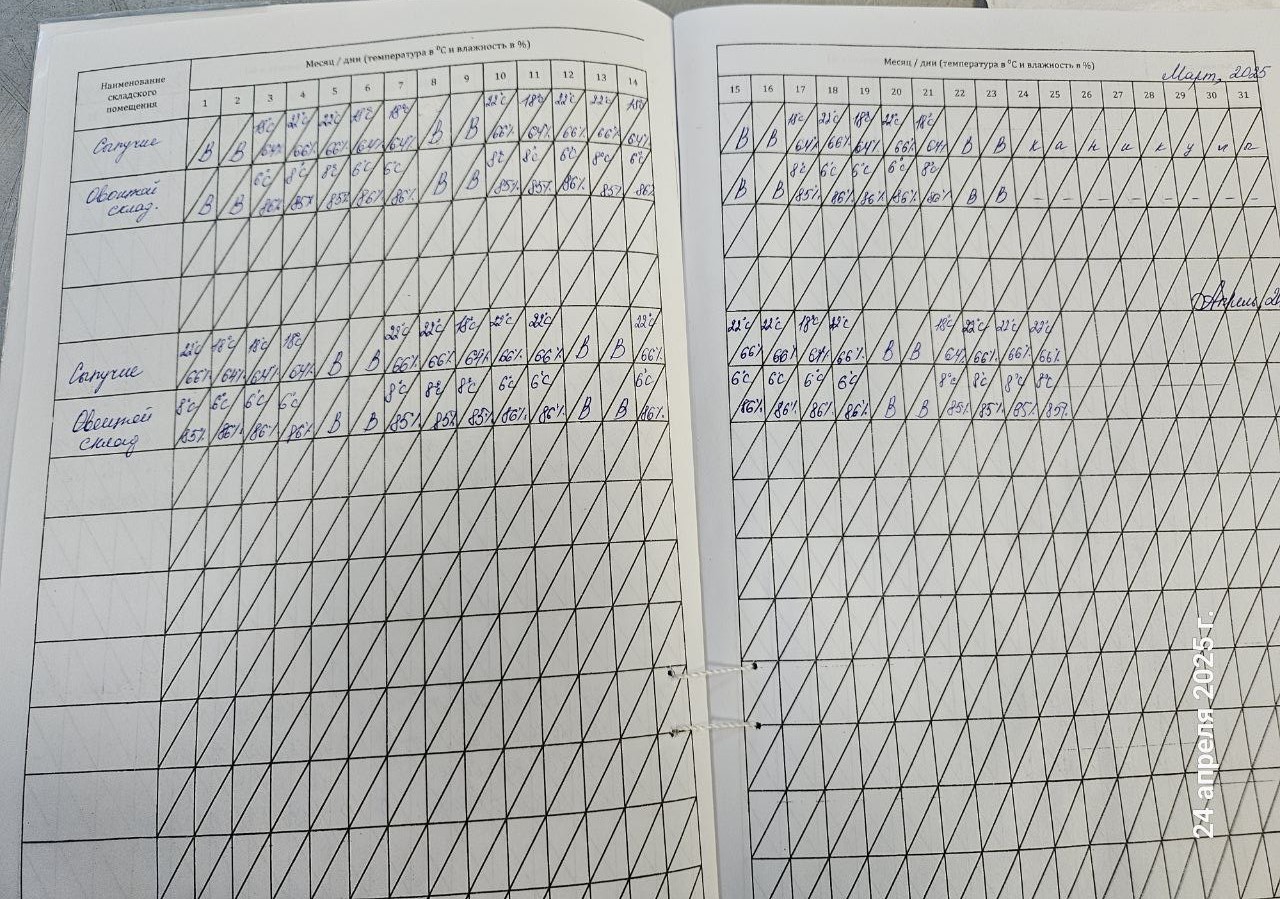 Месяц / дни (температура в °С и влажность в %)
Наименование складского помещения
1 2 3 4 5 6 7 8 9 10 11 12 13 14
Сыпучие
В В 18°С 64% 22°С 66% 22°С 66% 18°С 64% 18°С 64% В В 22°С 66% 18°С 64% 22°С 66% 22°С 66% 64%
Овощной склад.
В В 6°С 86% 8°С 85% 8°С 85% 6°С 86% 6°С 86% В В 8°С 85% 8°С 85% 6°С 86% 8°С 85% 6°С 86%
Сыпучие
22°С 66% 18°С 64% 18°С 64% 18°С 64% В В 22°С 66% 22°С 66% 18°С 64% 22°С 66% 22°С 66% В В 22°С 66%
Овощной склад
8°С 85% 6°С 86% 6°С 86% 6°С 86% В В 8°С 85% 8°С 85% 8°С 85% 6°С 86% 6°С 86% В В 6°С 86%
Месяц / дни (температура в °С и влажность в %)
Март, 2025
15 16 17 18 19 20 21 22 23 24 25 26 27 28 29 30 31
В В 18°С 64% 22°С 66% 18°С 64% 22°С 66% 18°С 64% В В к а н и к у л
В В 8°С 85% 6°С 86% 6°С 86% 6°С 86% 8°С В В - - - - - - - -
Апрель, 2
22°С 66% 22°С 66% 18°С 64% 22°С 66% В В 18°С 64% 22°С 66% 22°С 66% 22°С 66%
6°С 86% 6°С 86% 6°С 86% 6°С 86% В В 8°С 85% 8°С 85% 8°С 85% 8°С 85%
24 апреля 2025 г.